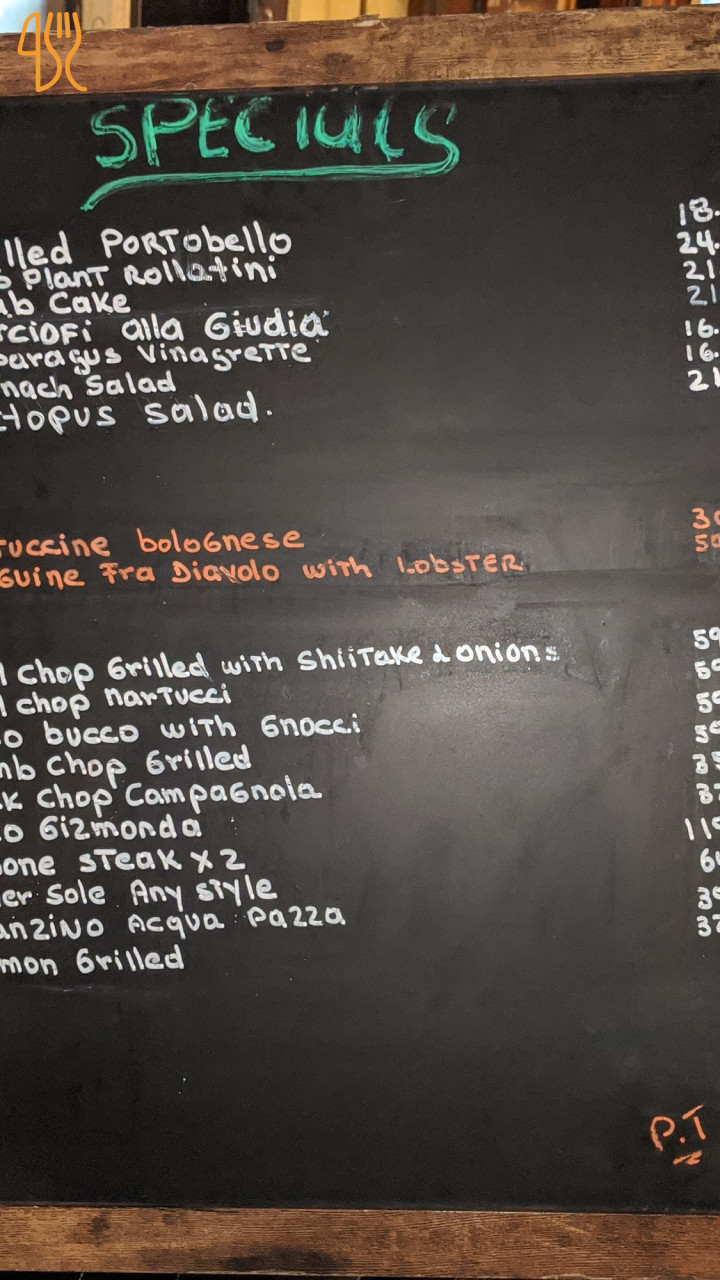 SPECIALS
lled PORTobello 18.
PlanT Rollatini 24.
ab Cake 21
rciofi alla Giudia 21
paragus VinagreTTe 16.
nach Salad 16.
topus Salad. 21
Tuccine boloGnese 30
Guine Fra Diavolo with LobSTER 50
l Chop Grilled with ShiiTake & onions 59
l chop marTucci 59
o bucco with Gnocci 59
mb Chop Grilled 59
k Chop CampaGnola 35
o Gizmonda 37
bone STeak x 2 115
er Sole Any style
anzino Acqua Pazza 39
mon Grilled 37
P.T